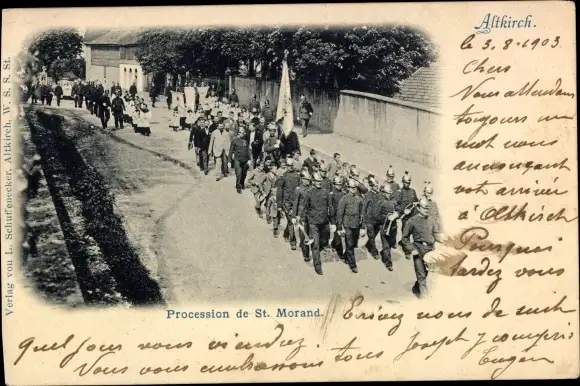 Altkirch.
le 3. 8. 1903
Chers
Nous attendons
toujours un
mot nous
annonçant
votre arrivée
à Altkirch
Pourquoi
tardez vous
Ecrivez nous de suite
Quel Jour vous viendez.
Vous vous embrassons tous Joseph y compris
Eugen
Procession de St. Morand.
Verlag von L. Schuffenecker, Altkirch, W. S. S. St.